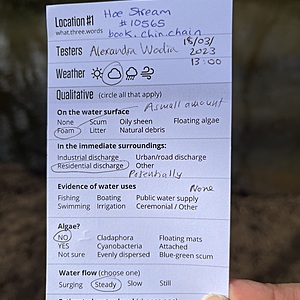 Location #1 Hoe Stream
what.three.words # 10565
book.chin.chain
Testers Alexandra Wodin 18/03/2023
Weather 13:00
Qualitative (circle all that apply)
On the water surface A small amount
None Scum Oily sheen Floating algae
Foam Litter Natural debris
In the immediate surroundings:
Industrial discharge Urban/road discharge
Residential discharge Other
Potentially
Evidence of water uses None
Fishing Boating Public water supply
Swimming Irrigation Ceremonial / Other
Algae?
NO Cladaphora Floating mats
YES Cyanobacteria Attached
Not sure Evenly dispersed Blue-green scum
Water flow (choose one)
Surging Steady Slow Still